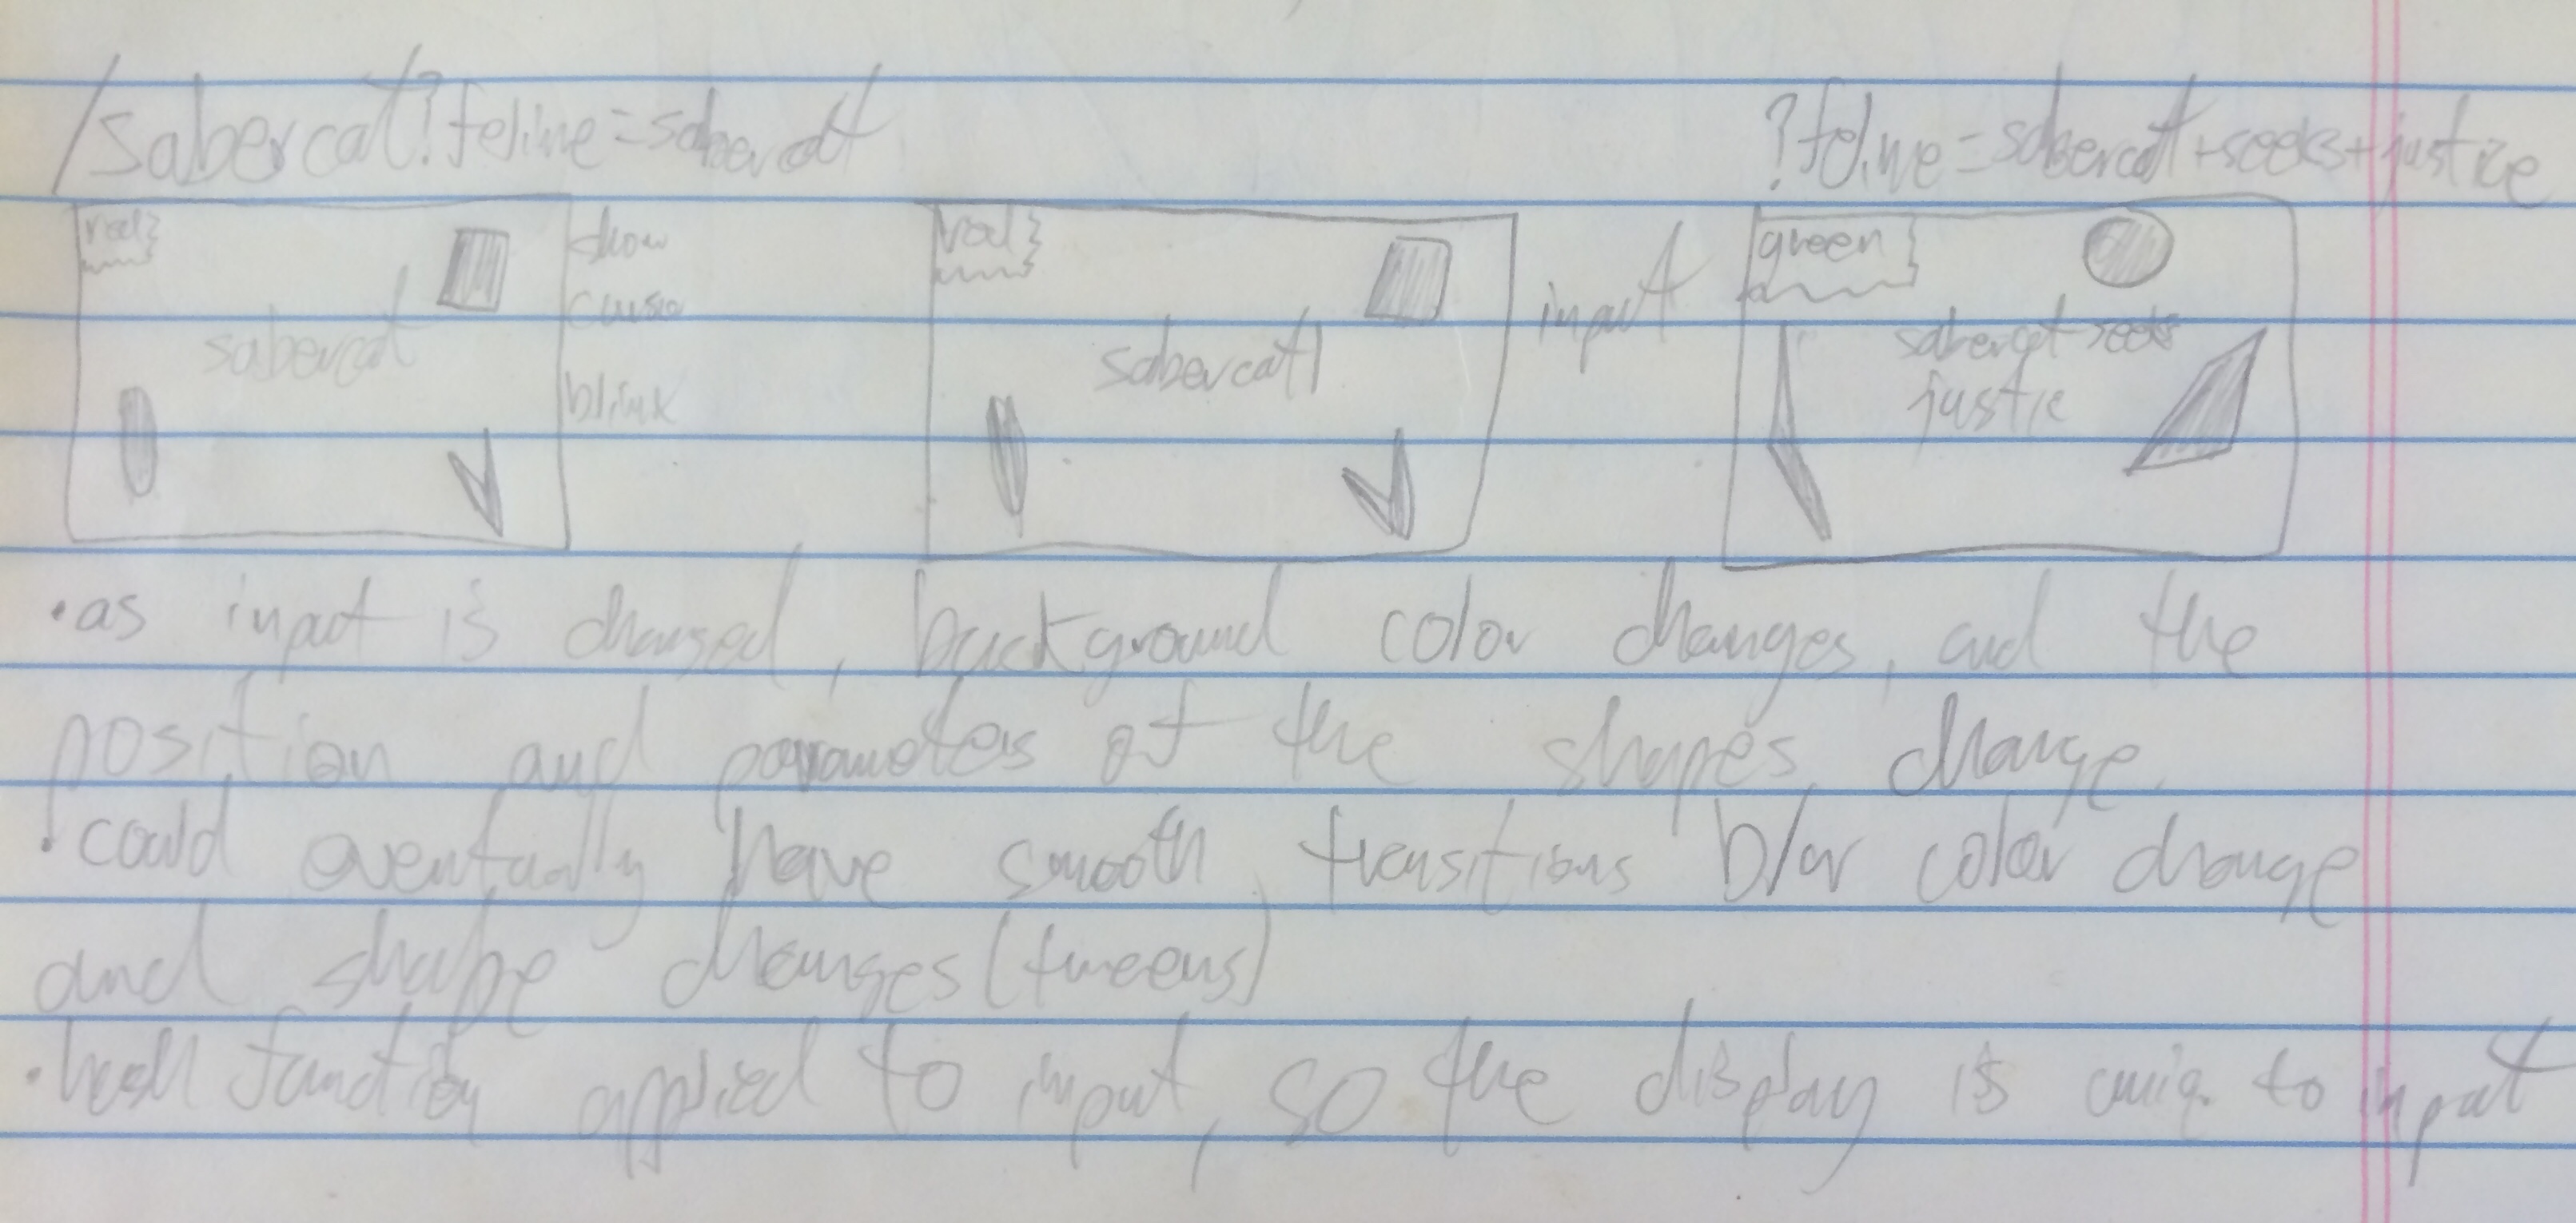 /sabercat?feline=sabercat
?feline=sabercat+seeks+justice
red
sabercat
show
cursor
blink
red
sabercat|
input
green
sabercat seeks
justice
•as input is changed, background color changes, and the
position and parameters of the shapes change.
•could eventually have smooth transitions color change
and shape changes (tweens)
•hash function applied to input, so the display is uniq. to input